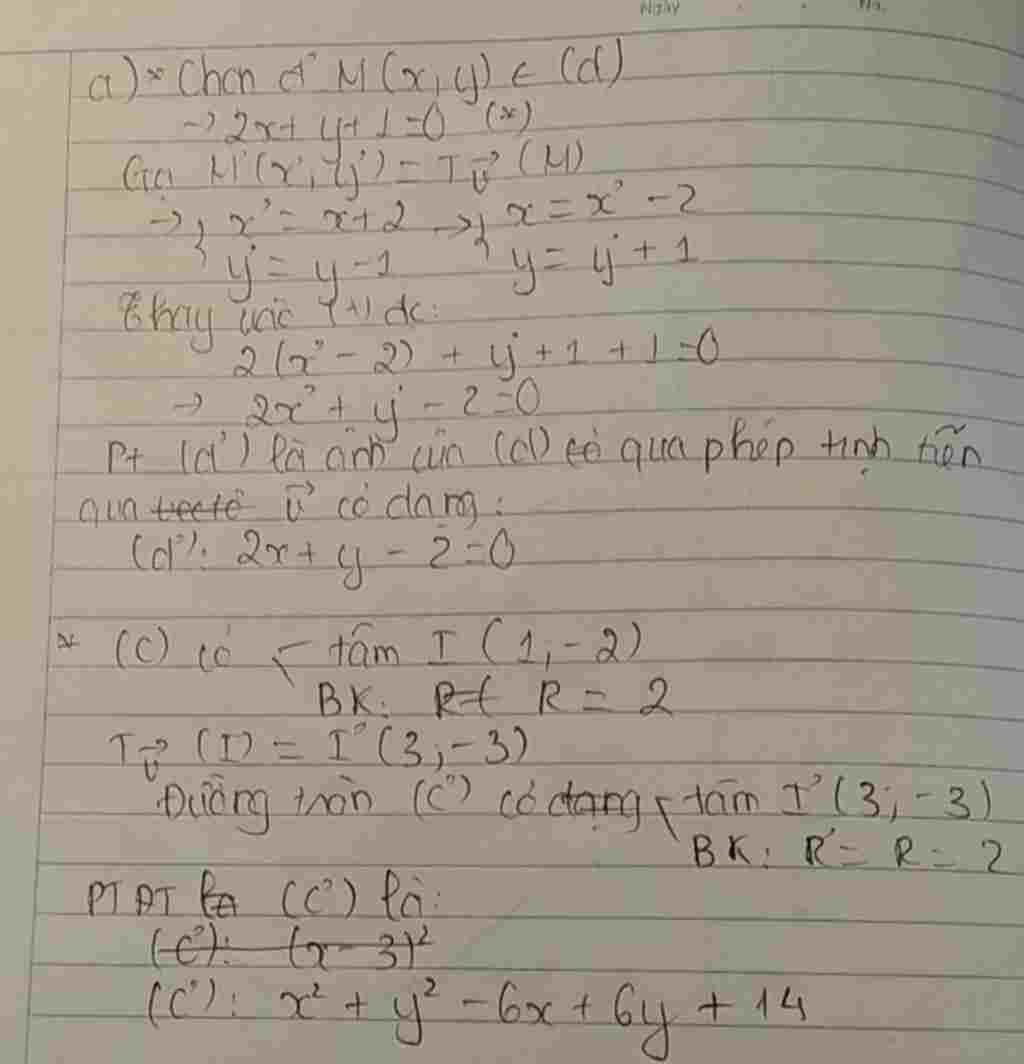 Ngày No.
a) * Chọn đ' M(x, y) ∈ (d)
→ 2x + y + 1 = 0 (*)
Gọi M'(x', y') = T_v⃗ (M)
→ { x' = x + 2 → { x = x' - 2
y' = y - 1 y = y' + 1
Thay vào (*) dc:
2(x' - 2) + y' + 1 + 1 = 0
→ 2x' + y' - 2 = 0
Pt (d') là ảnh của (d) có qua phép tịnh tiến
qua v⃗ có dạng:
(d'): 2x + y - 2 = 0
* (C) có { tâm I (1, -2)
BK: R = 2
T_v⃗ (I) = I'(3; -3)
Đường tròn (C') có dạng { tâm I'(3; -3)
BK: R' = R = 2
PT ĐT (C') là:
(C'): (x - 3)²
(C'): x² + y² - 6x + 6y + 14